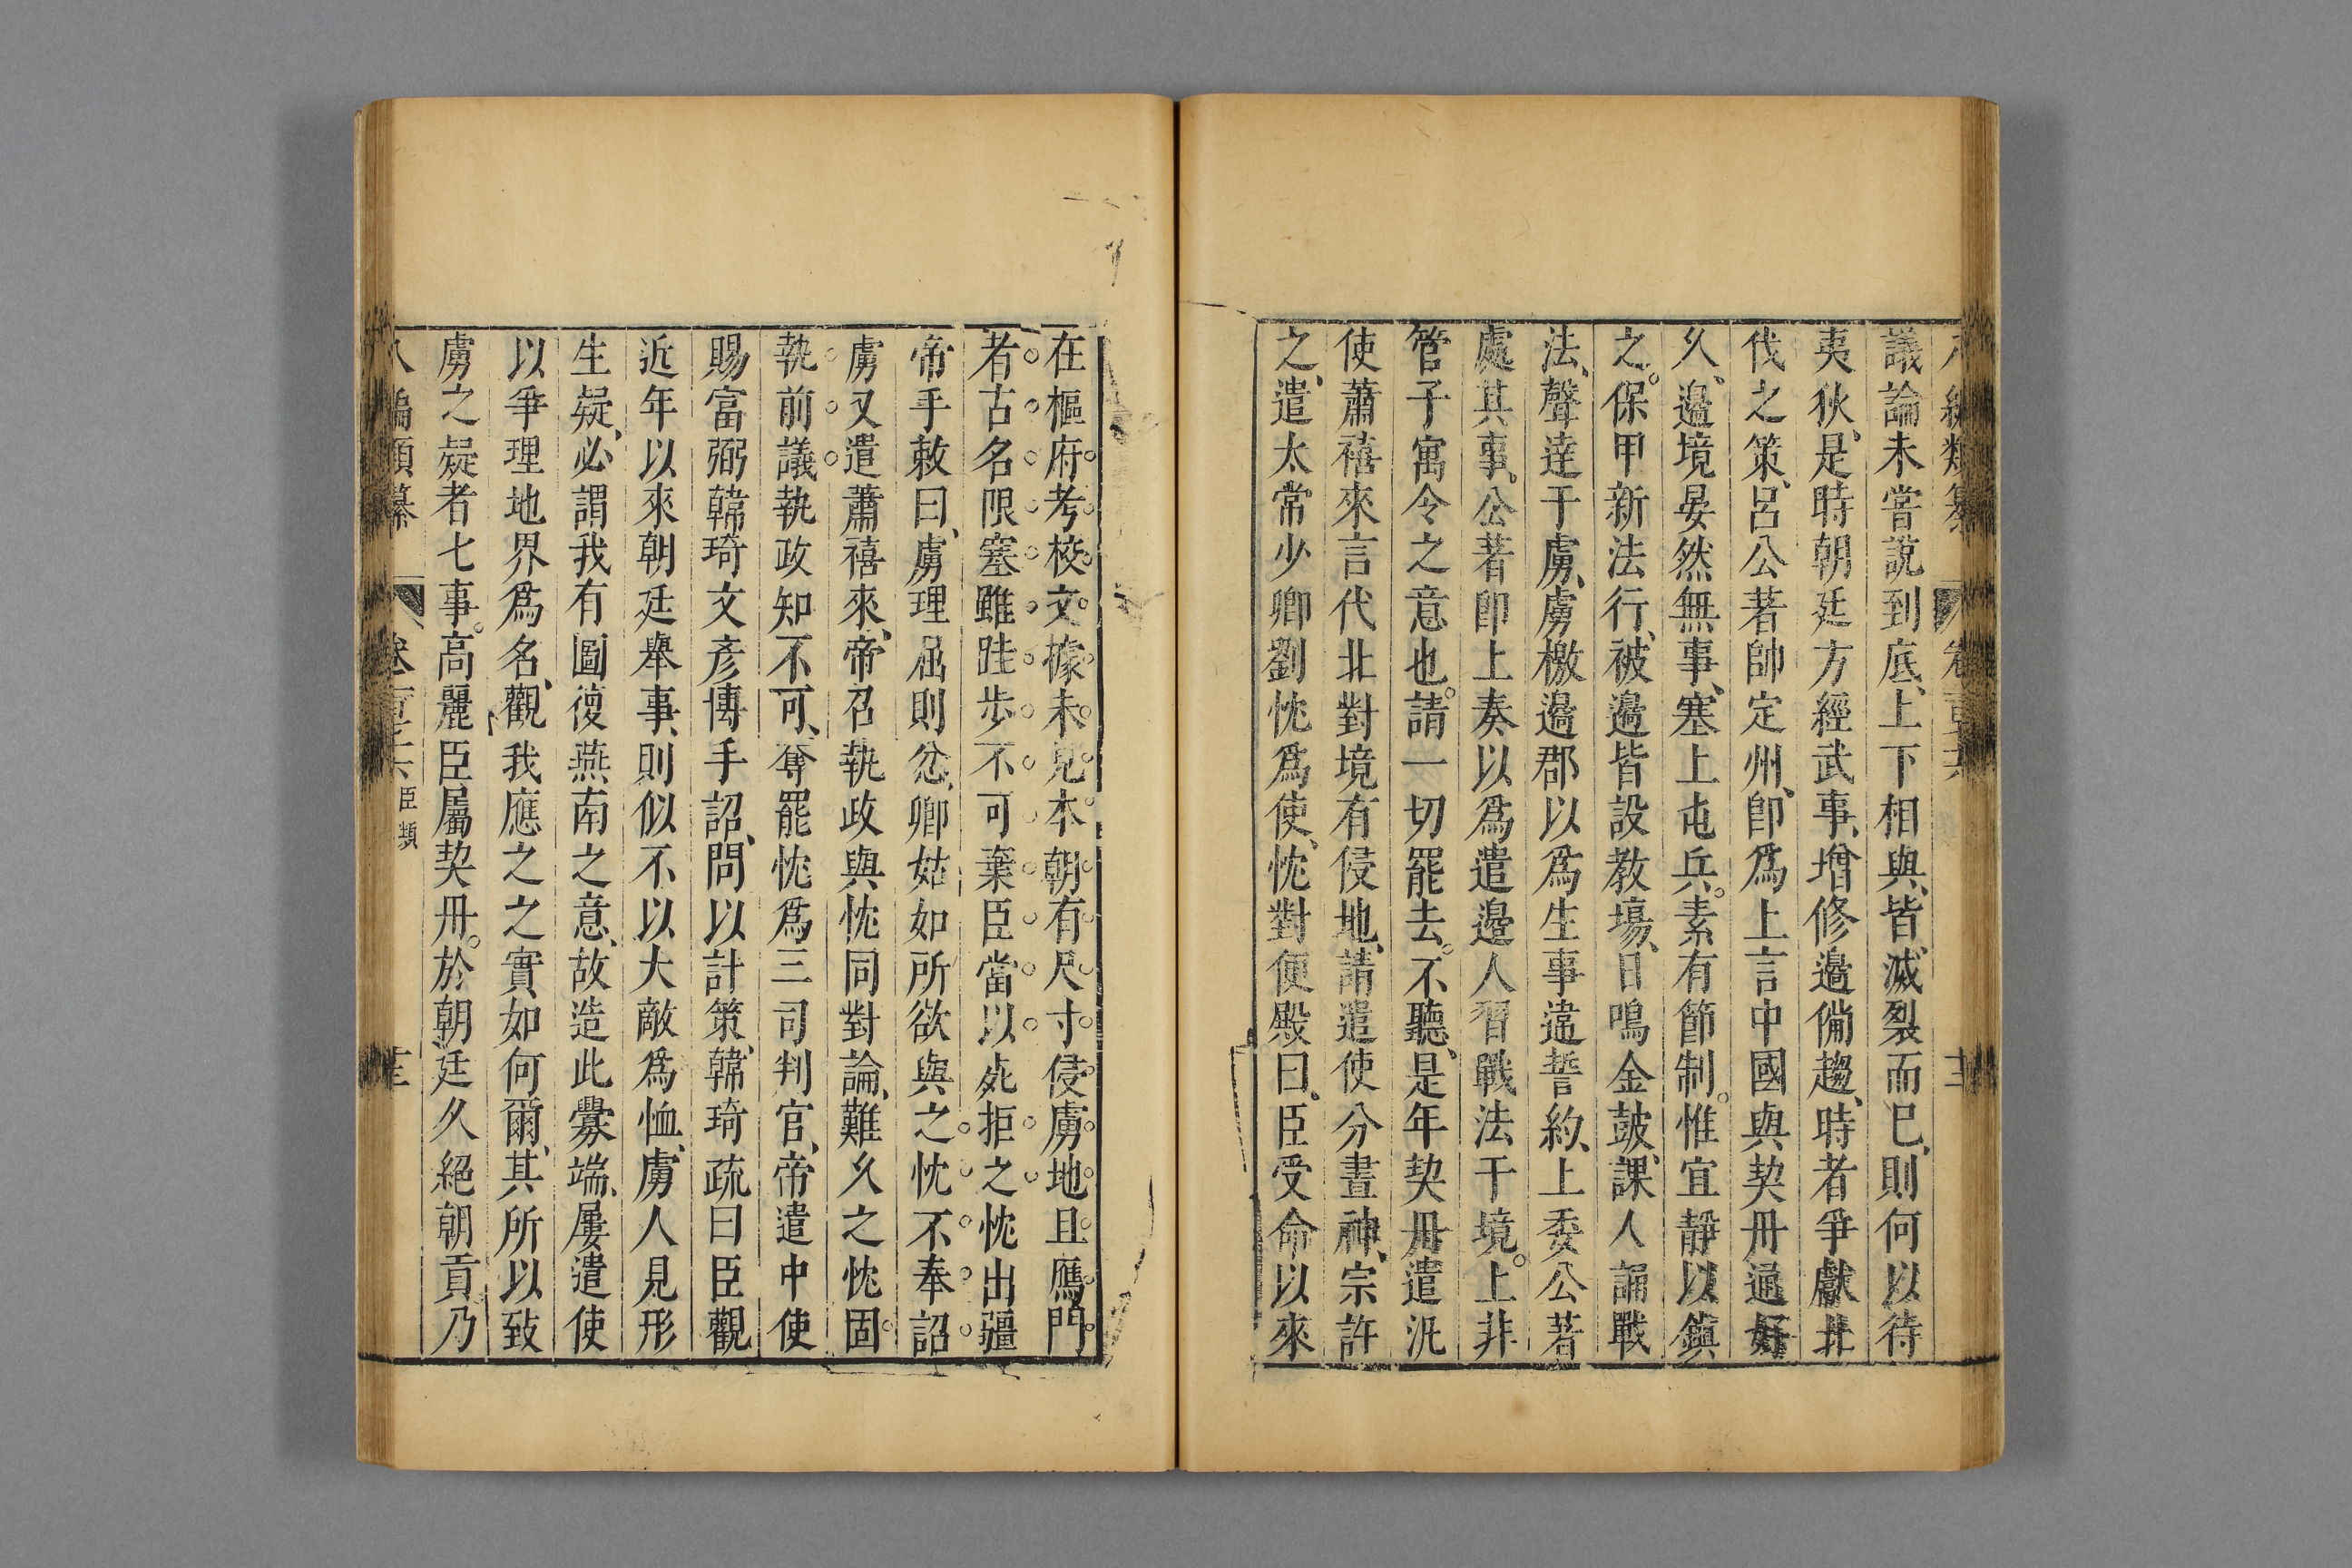 議論未甞說到底、上下相與、皆滅裂而已、則何以待
夷狄、是時朝廷方經武事、增修邊備、趨時者爭獻北
伐之策、呂公著帥定州、卽爲上言中國與契丹通好
久、邊境晏然無事、塞上屯兵。素有節制。惟宜靜以鎮
之。保甲新法行、被邊皆設教塲、日鳴金鼓、課人誦戰
法、聲達于虜、虜檄邊郡以爲生事違誓約、上委公著
處其事。公著卽上奏以爲遣邊人習戰法于境。上非
管子寓令之意也。請一切罷去。不聽、是年契丹遣汎
使蕭禧來言代北對境有侵地、請遣使分晝神、宗許
之、遣太常少卿劉忱爲使、忱對便殿曰。臣受命以來
在樞府考校文據未見本朝有尺寸侵虜地且鴈門
者古名限塞雖跬步不可棄臣當以死拒之忱出疆
帝手敕曰、虜理屈則忿、卿姑如所欲與之忱不奉詔
虜又遣蕭禧來、帝召執政與忱同對論、難久之忱固
執前議執政知不可、奪罷忱爲三司判官、帝遣中使
賜富弼韓琦文彥博手詔、問以計策、韓琦疏曰臣觀
近年以來朝廷舉事、則似不以大敵爲恤、虜人見形
生疑、必謂我有圖復燕南之意、故造此釁端、屢遣使
以爭理地界爲名、觀我應之之實如何爾、其所以致
虜之疑者七事。高麗臣屬契丹。於朝廷久絕朝貢、乃
臣類